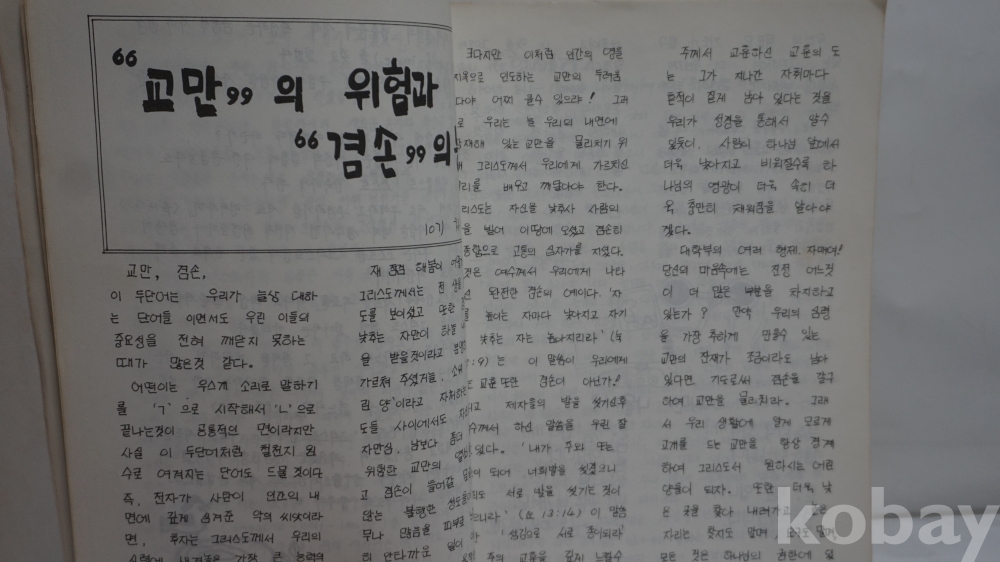 “교만„의 위험과
“겸손„의
10기
교만, 겸손,
이 두단어는 우리가 늘상 대하
는 단어들 이면서도 우린 이들의
중요성을 전혀 깨닫지 못하는
때가 많은것 같다.
어떤이는 우스개 소리로 말하기
를 'ㄱ'으로 시작해서 'ㄴ'으로
끝나는것이 공통적인 면이라지만
사실 이 두단어처럼 철천지 원
수로 여겨지는 단어도 드물 것이다
즉, 전자가 사탄이 인간의 내
면에 깊게 심겨준 악의 씨앗이라
면, 후자는 그리스도께서 우리의
가장 큰 능력의
그리스도께서는 전
도를 보이셨고 또한
낮추는 자만이
을 받을것이라고
가르쳐 주었거늘,
도들 사이에서도
자만심, 남보다
위험한 교만의
고 겸손이 들어갈
않는 불행한
무나 많음을
히 안타까운
크다지만 이처럼 인간의 영을
지옥으로 인도하는 교만의 두려움
다야 어찌 클수 있으랴! 그러
로 우리는 늘 우리의 내면에
잠재해 있는 교만을 물리치기 위
해 그리스도께서 우리에게 가르치신
리를 배우고 깨달아야 한다.
리스도는 자신을 낮추사 사람의
을 빌어 이땅에 오셨고 겸손히
종함으로 고통의 십자가를 지셨다.
것은 예수께서 우리에게 나타
완전한 겸손의 예이다. '자
를 높이는 자마다 낮아지고 자기
낮추는 자는 높아지리라' (눅
:9) 는 이 말씀이 우리에게
교훈 또한 겸손이 아닌가!
고 제자들의 발을 씻기신후
수께서 하신 말씀을 우린 잘
있다. '내가 주와 또는
되어 너희발을 씻겼으니
서로 발을 씻기는 것이
으니라' (요 13:14) 이 말씀
섬김으로 서로 종이되라'
주의 교훈을 깊게 느낄수
주께서 교훈하신 교훈의 도
는 그가 지나간 자취마다
흔적이 짙게 남아 있다는 것을
우리가 성경을 통해서 알수
있듯이, 사람이 하나님 앞에서
더욱 낮아지고 비워질수록 하
나님의 영광이 더욱 속히 더
욱 충만히 채워짐을 알아야
겠다.
대학부의 여러 형제, 자매여!
당신의 마음속에는 진정 어느것
이 더 많은 부분을 차지하고
있는가? 만약 우리의 심령
을 가장 추하게 만들수 있는
교만의 잔재가 조금이라도 남아
있다면 기도로써 겸손을 갈구
하여 교만을 물리치라. 그래
서 우리 생활에 알게 모르게
고개를 드는 교만을 항상 경계
하여 그리스도서 원하시는 어린
양들이 되자. 또한 더욱 낮
은 곳을 찾다 내려가고
자라는 줄지도 말며
모든 것은 하나님의 권한에
kobay